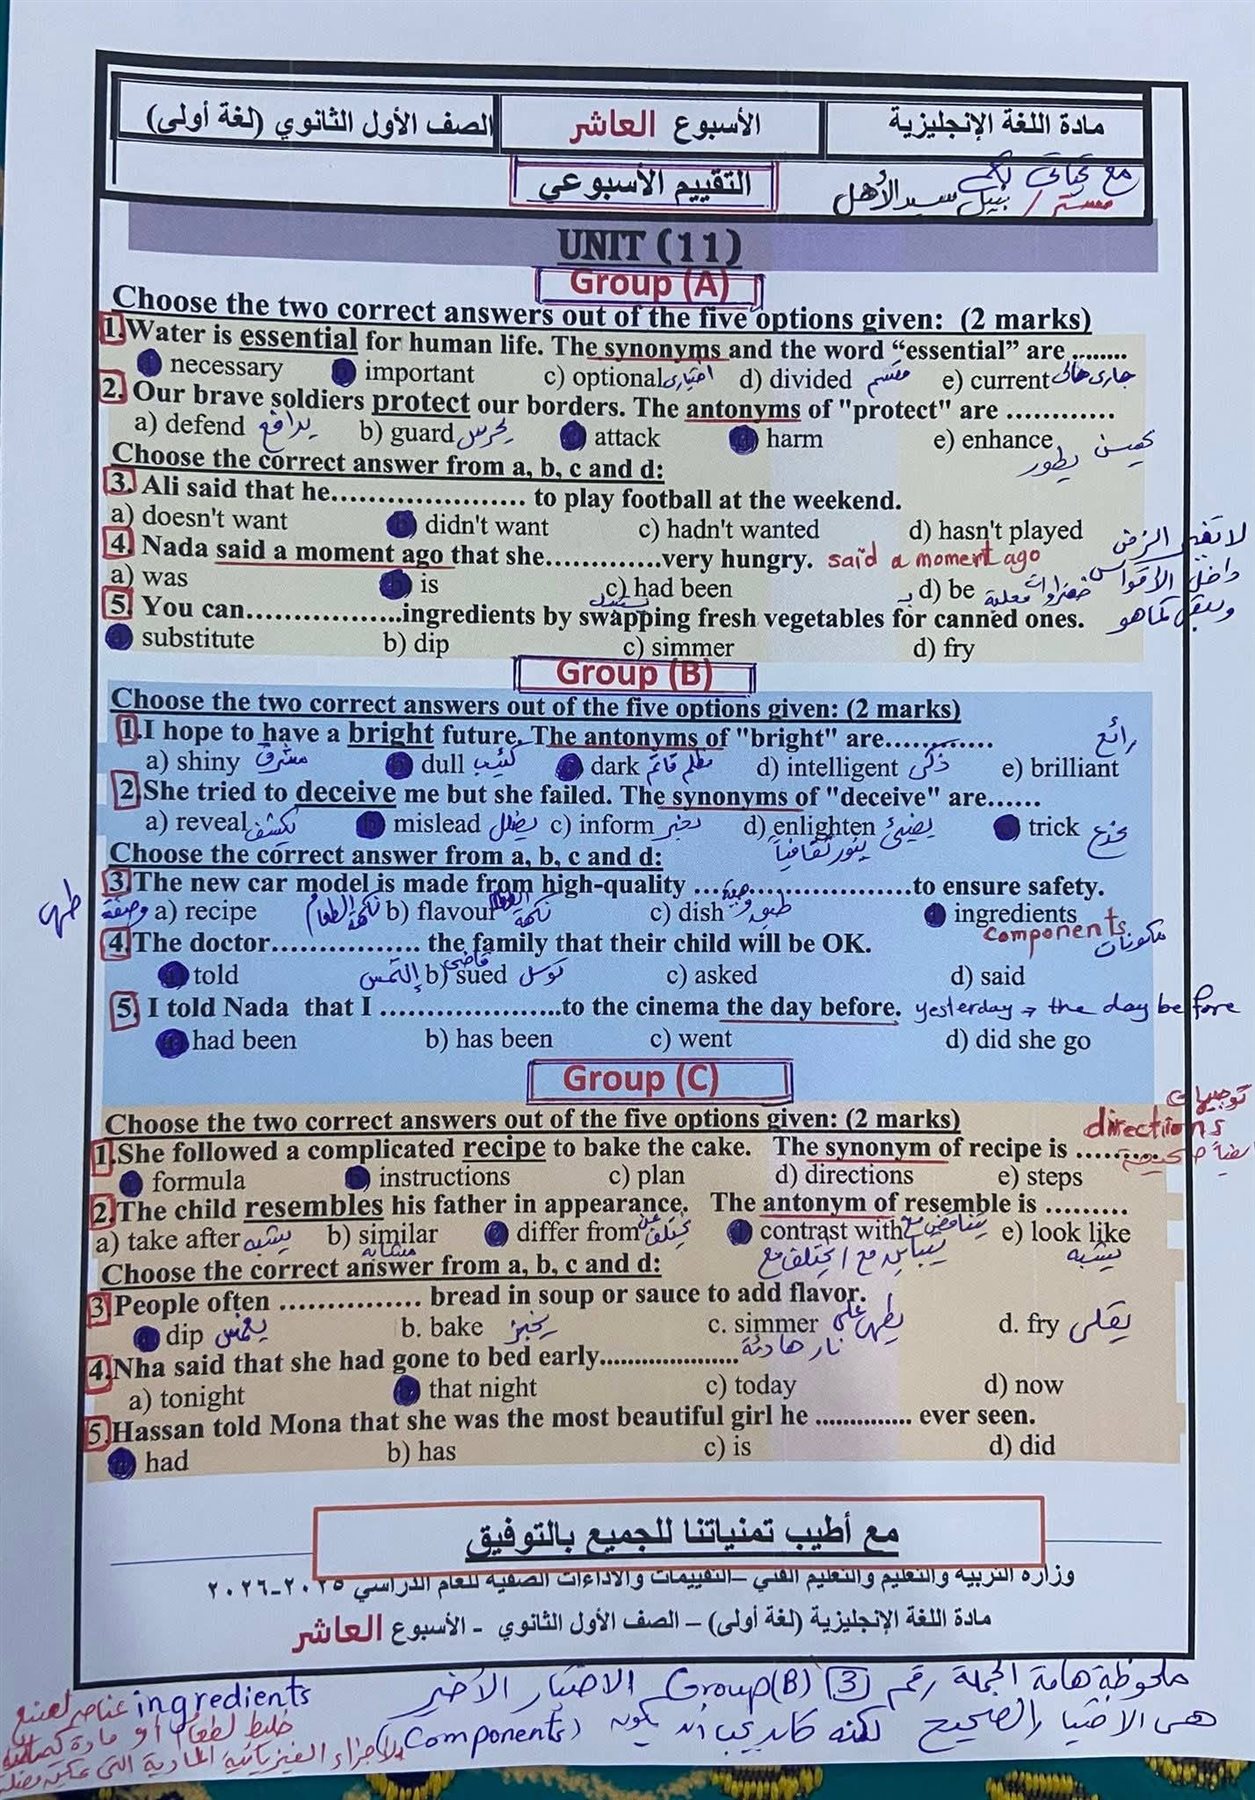 مادة اللغة الإنجليزية
الأسبوع العاشر
الصف الأول الثانوي (لغة أولى)
التقييم الأسبوعي
مع تحياتي لكم
مستر / نبيل سيد الأهل
UNIT (11)
Group (A)
Choose the two correct answers out of the five options given: (2 marks)
1.Water is essential for human life. The synonyms and the word “essential” are ........
necessary important c) optional اختياري d) divided مقسم e) current جاري حالي
2. Our brave soldiers protect our borders. The antonyms of "protect" are …………
a) defend يدافع b) guard يحرس attack harm e) enhance يحسن يطور
Choose the correct answer from a, b, c and d:
3. Ali said that he…………………. to play football at the weekend.
a) doesn't want b) didn't want c) hadn't wanted d) hasn't played
4. Nada said a moment ago that she………….very hungry. said a moment ago
لا يتغير الزمن
داخل الأقواس
ويبقى كما هو
a) was b) is c) had been d) be
5. You can……………..ingredients by swapping fresh vegetables for canned ones.
يستبدل خضروات معلبة
substitute b) dip c) simmer d) fry
Group (B)
Choose the two correct answers out of the five options given: (2 marks)
1.I hope to have a bright future. The antonyms of "bright" are…………
a) shiny مشرق dull كئيب dark مظلم قاتم d) intelligent ذكي e) brilliant رائع
2.She tried to deceive me but she failed. The synonyms of "deceive" are……
a) reveal يكشف mislead يضلل c) inform يخبر d) enlighten يضيئ ينور ثقافياً trick يخدع
Choose the correct answer from a, b, c and d:
3.The new car model is made from high-quality …………………to ensure safety.
a) recipe وصفة طهي b) flavour نكهة الطعام c) dish طبق وجبة ingredients
components مكونات
4.The doctor……………. the family that their child will be OK.
told b) sued c) asked d) said
5. I told Nada that I ……………….to the cinema the day before. yesterday → the day before
had been b) has been c) went d) did she go
Group (C)
Choose the two correct answers out of the five options given: (2 marks)
توجيهات
directions
1.She followed a complicated recipe to bake the cake. The synonym of recipe is ………
formula instructions c) plan d) directions e) steps
2.The child resembles his father in appearance. The antonym of resemble is ………
a) take after يشبه b) similar مشابه differ from يختلف عن contrast with يتناقض مع e) look like يشبه
يتباين مع / يختلف مع
Choose the correct answer from a, b, c and d:
3.People often …………… bread in soup or sauce to add flavor.
dip يغمس b. bake يخبز c. simmer يطهي على نار هادئة d. fry يقلي
4.Nha said that she had gone to bed early....................
a) tonight that night c) today d) now
5.Hassan told Mona that she was the most beautiful girl he .............. ever seen.
had b) has c) is d) did
مع أطيب تمنياتنا للجميع بالتوفيق
وزارة التربية والتعليم والتعليم الفني –التقييمات والأداءات الصفية للعام الدراسي ٢٠٢٥-٢٠٢٦
مادة اللغة الإنجليزية (لغة أولى) – الصف الأول الثانوي - الأسبوع العاشر
ملحوظة هامة الجملة رقم [3] Group(B) الاختيار الأخير ingredients
هى الاختيار الصحيح لكنه كان يجب أن يكون (components)
عناصر لصنع
خليط لطعام أو مادة كيميائية
الأجزاء الفيزيائية المادية التي